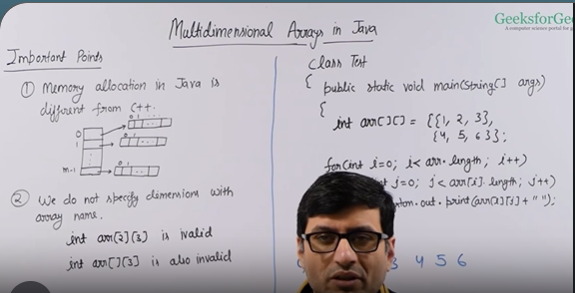 Multidimensional Arrays in Java
GeeksforGee
A computer science portal for g
Important Points
① Memory allocation in Java is
different from C++.
0 1
0
0 1
1
0 1
m-1
② We do not specify dimensions with
array name.
int arr[2][3] is ivalid
int arr[][3] is also invalid
class Test
{ public static void main(String[] args)
{
int arr[][] = {{1, 2, 3},
{4, 5, 6}};
for(int i=0; i<arr.length; i++)
t j=0; j<arr[i].length; j++)
tem.out.print(arr[i][j]+" ");
3 4 5 6